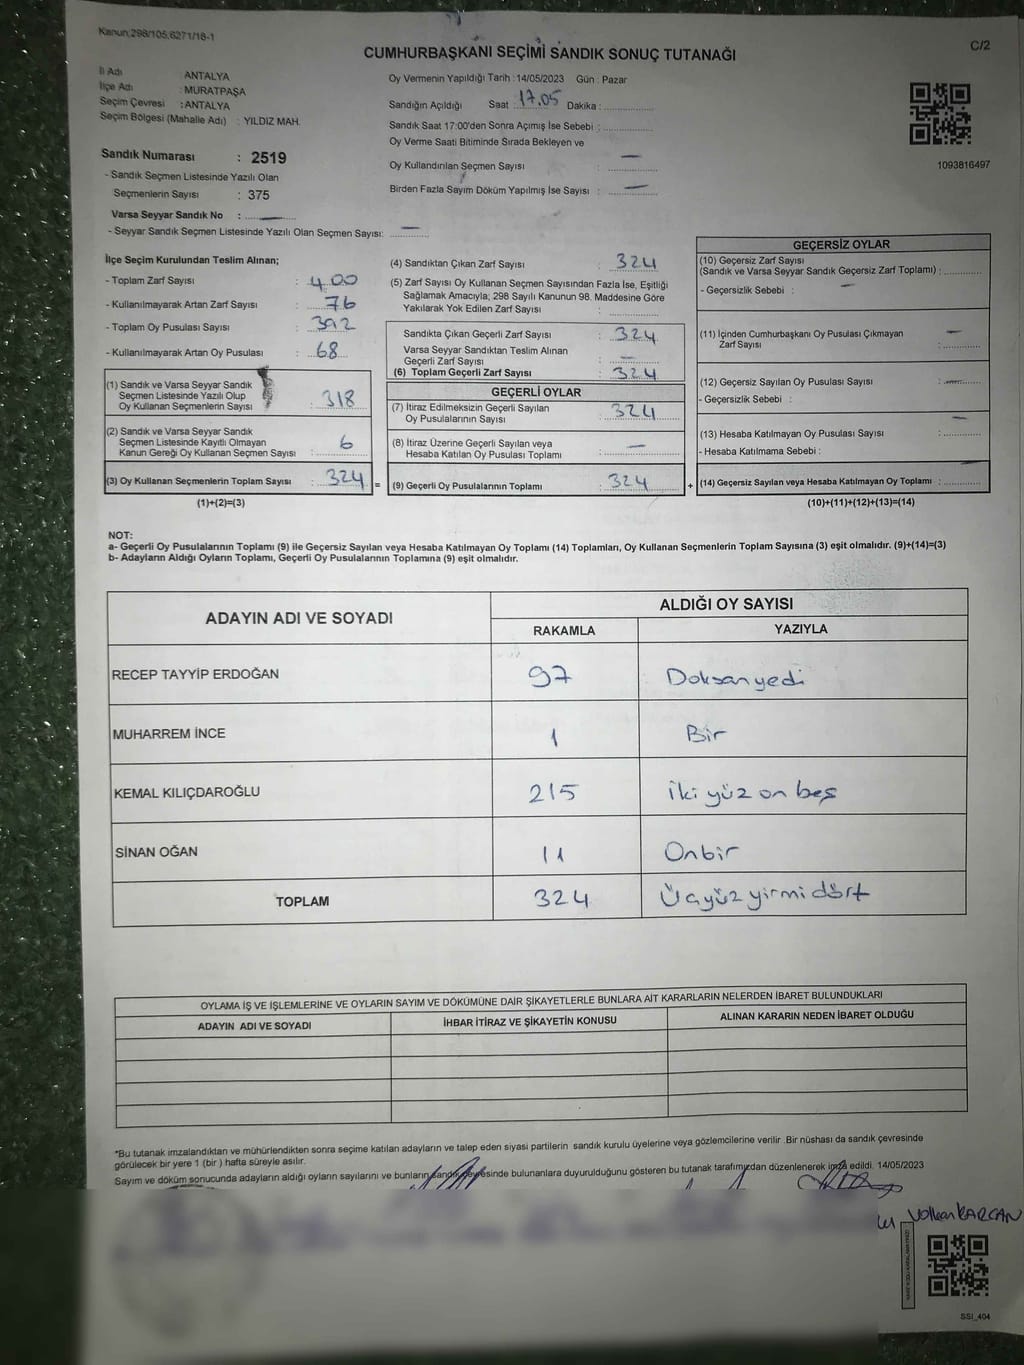 Kanun:298/105,6271/18-1
C/2
CUMHURBAŞKANI SEÇİMİ SANDIK SONUÇ TUTANAĞI
İl Adı : ANTALYA
İlçe Adı : MURATPAŞA
Seçim Çevresi : ANTALYA
Seçim Bölgesi (Mahalle Adı) : YILDIZ MAH.
Sandık Numarası : 2519
- Sandık Seçmen Listesinde Yazılı Olan
Seçmenlerin Sayısı : 375
Varsa Seyyar Sandık No : —
- Seyyar Sandık Seçmen Listesinde Yazılı Olan Seçmen Sayısı: —
Oy Vermenin Yapıldığı Tarih : 14/05/2023 Gün : Pazar
Sandığın Açıldığı Saat : 17.05 Dakika :
Sandık Saat 17:00'den Sonra Açımış İse Sebebi :
Oy Verme Saati Bitiminde Sırada Bekleyen ve
Oy Kullandırılan Seçmen Sayısı : —
Birden Fazla Sayım Döküm Yapılmış İse Sayısı : —
1093816497
İlçe Seçim Kurulundan Teslim Alınan;
- Toplam Zarf Sayısı : 400
- Kullanılmayarak Artan Zarf Sayısı : 76
- Toplam Oy Pusulası Sayısı : 392
- Kullanılmayarak Artan Oy Pusulası : 68
(1) Sandık ve Varsa Seyyar Sandık
Seçmen Listesinde Yazılı Olup
Oy Kullanan Seçmenlerin Sayısı : 318
(2) Sandık ve Varsa Seyyar Sandık
Seçmen Listesinde Kayıtlı Olmayan
Kanun Gereği Oy Kullanan Seçmen Sayısı : 6
(3) Oy Kullanan Seçmenlerin Toplam Sayısı : 324
(1)+(2)=(3)
(4) Sandıktan Çıkan Zarf Sayısı : 324
(5) Zarf Sayısı Oy Kullanan Seçmen Sayısından Fazla İse, Eşitliği
Sağlamak Amacıyla; 298 Sayılı Kanunun 98. Maddesine Göre
Yakılarak Yok Edilen Zarf Sayısı :
Sandıkta Çıkan Geçerli Zarf Sayısı : 324
Varsa Seyyar Sandıktan Teslim Alınan
Geçerli Zarf Sayısı : —
(6) Toplam Geçerli Zarf Sayısı : 324
GEÇERLİ OYLAR
(7) İtiraz Edilmeksizin Geçerli Sayılan
Oy Pusulalarının Sayısı : 324
(8) İtiraz Üzerine Geçerli Sayılan veya
Hesaba Katılan Oy Pusulası Toplamı : —
= (9) Geçerli Oy Pusulalarının Toplamı : 324
GEÇERSİZ OYLAR
(10) Geçersiz Zarf Sayısı
(Sandık ve Varsa Seyyar Sandık Geçersiz Zarf Toplamı) :
- Geçersizlik Sebebi : —
(11) İçinden Cumhurbaşkanı Oy Pusulası Çıkmayan
Zarf Sayısı : —
(12) Geçersiz Sayılan Oy Pusulası Sayısı : —
- Geçersizlik Sebebi :
(13) Hesaba Katılmayan Oy Pusulası Sayısı : —
- Hesaba Katılmama Sebebi :
+ (14) Geçersiz Sayılan veya Hesaba Katılmayan Oy Toplamı : —
(10)+(11)+(12)+(13)=(14)
NOT:
a- Geçerli Oy Pusulalarının Toplamı (9) ile Geçersiz Sayılan veya Hesaba Katılmayan Oy Toplamı (14) Toplamları, Oy Kullanan Seçmenlerin Toplam Sayısına (3) eşit olmalıdır. (9)+(14)=(3)
b- Adayların Aldığı Oyların Toplamı, Geçerli Oy Pusulalarının Toplamına (9) eşit olmalıdır.
ADAYIN ADI VE SOYADI
ALDIĞI OY SAYISI
RAKAMLA YAZIYLA
RECEP TAYYİP ERDOĞAN 97 Doksanyedi
MUHARREM İNCE 1 Bir
KEMAL KILIÇDAROĞLU 215 İki yüz on beş
SİNAN OĞAN 11 Onbir
TOPLAM 324 Üçyüz yirmi dört
OYLAMA İŞ VE İŞLEMLERİNE VE OYLARIN SAYIM VE DÖKÜMÜNE DAİR ŞİKAYETLERLE BUNLARA AİT KARARLARIN NELERDEN İBARET BULUNDUKLARI
ADAYIN ADI VE SOYADI İHBAR İTİRAZ VE ŞİKAYETİN KONUSU ALINAN KARARIN NEDEN İBARET OLDUĞU
*Bu tutanak imzalandıktan ve mühürlendikten sonra seçime katılan adayların ve talep eden siyasi partilerin sandık kurulu üyelerine veya gözlemcilerine verilir .Bir nüshası da sandık çevresinde
görülecek bir yere 1 (bir ) hafta süreyle asılır.
Sayım ve döküm sonucunda adayların aldığı oyların sayılarını ve bunların sandık çevresinde bulunanlara duyurulduğunu gösteren bu tutanak tarafımızdan düzenlenerek imza edildi. 14/05/2023
Volkan KARCAN
SSI_404